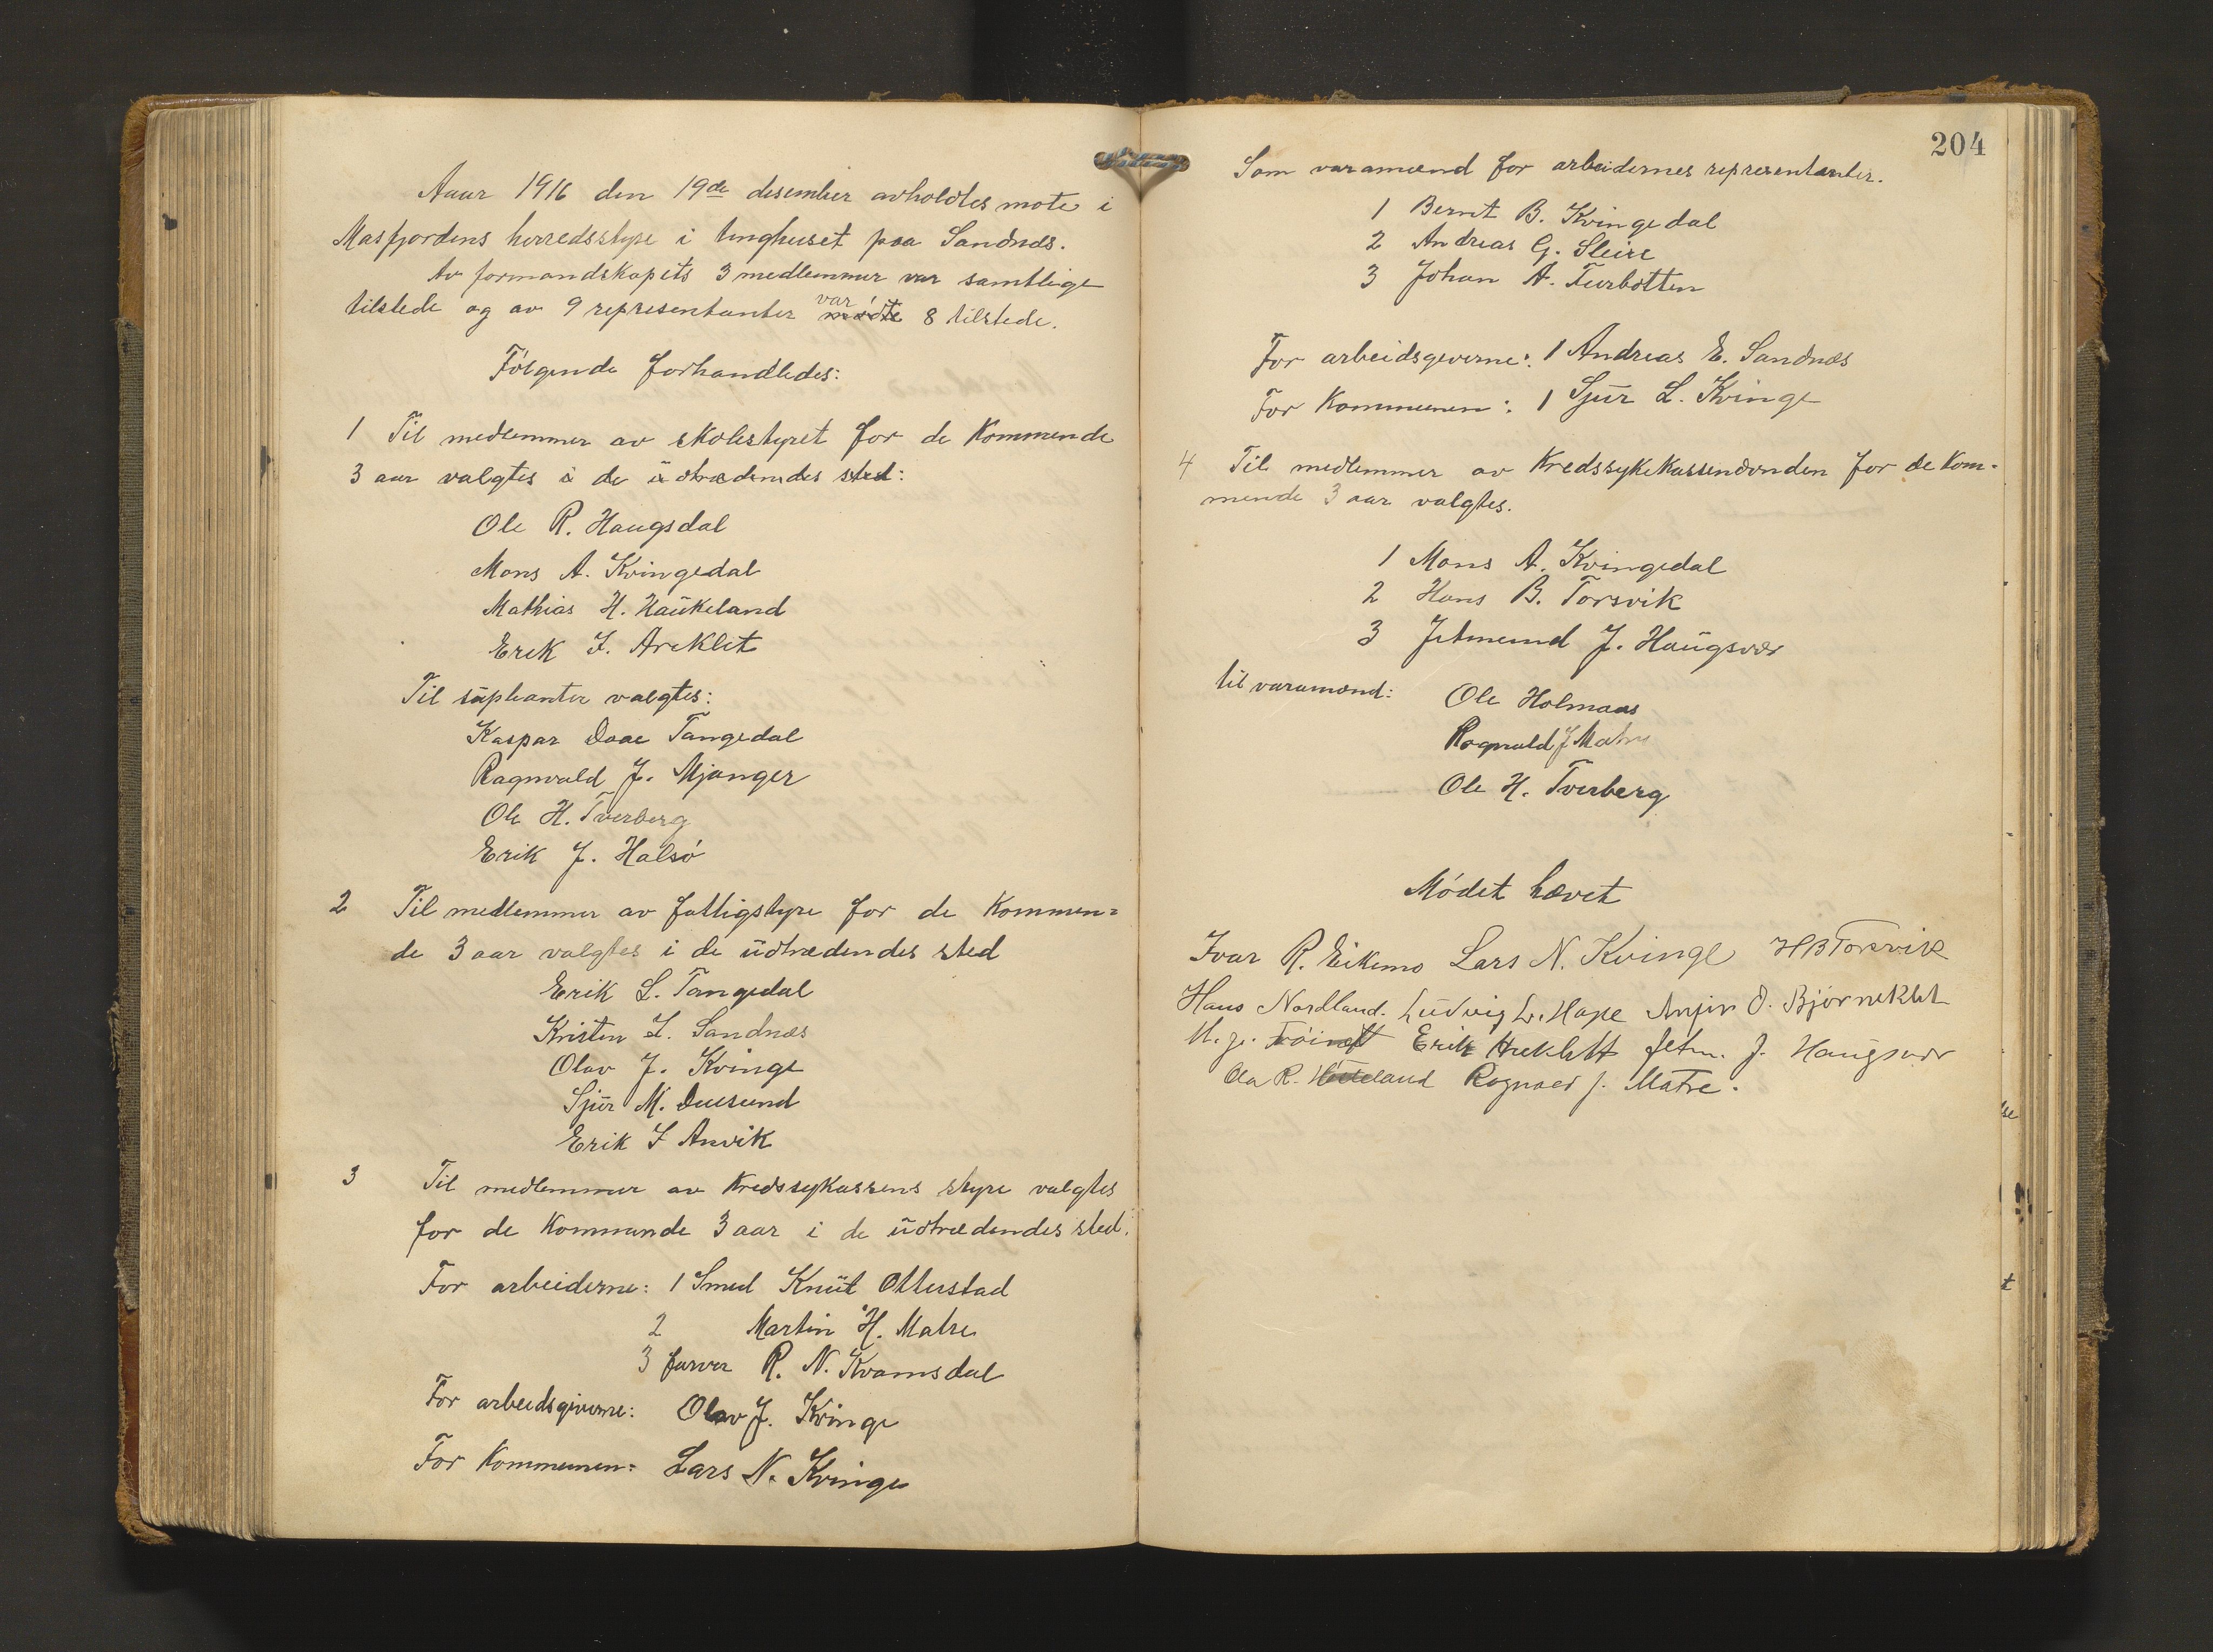 Aaar 1916 den 19de desember avholdtes møte i
Masfjordens herredsstyre i tinghuset paa Sandnes.
Av formandskapets 3 medlemmer var samtlige
tilstede og av 9 representanter var mødte 8 tilstede.
Følgende forhandledes:
1 Til medlemmer av skolestyret for de kommende
3 aar valgtes i de utrædendes sted:
Ole R. Haugsdal
Mons A. Kvingedal
Mathias H. Haukeland
Erik I. Areklet
Til supleanter valgtes:
Kaspar Daae Tangedal
Ragnvald J. Mjanger
Ole H. Tverberg
Erik J. Halsø
2 Til medlemmer av fattigstyre for de kommen=
de 3 aar valgtes i de udtrædendes sted
Erik L. Tangedal
Kristen I. Sandnæs
Olav J. Kvinge
Sjur M. Duesund
Erik I Anvik
3 Til medlemmer av Kredssykassens styre valgtes
for de kommende 3 aar i de udtrædendes sted.
For arbeiderne: 1 Smed Knut Otterstad
2 Martin H. Matre
3 farver R. N. Kvamsdal
For arbeidsgiverne: Olav J. Kvinge
For kommunen: Lars N. Kvinge
204
Som varamænd for arbeidernes representanter.
1 Bernt B. Kvingedal
2 Andreas G. Sleire
3 Johan A. Furbotten
For arbeidsgeverne: 1 Andreas E. Sandnæs
For Kommunen: 1 Sjur L. Kvinge
4 Til medlemmer av Kredssykekassenævnden for de kom=
mende 3 aar valgtes.
1 Mons A. Kvingedal
2 Hans B. Torsvik
3 Jetmund J. Haugsvær
til varamænd: Ole Holmaas
Ragnvald J Matre
Ole H. Tverberg
Mødet hævet
Ivar R. Eikemo Lars N. Kvinge H B Torsvik
Hans Nordland. Ludvig L. Hope Anfin O. Bjørneklet
Erik Areklett Jetm. J. Haugsvær
Ola R. Ragnald J. Matre.